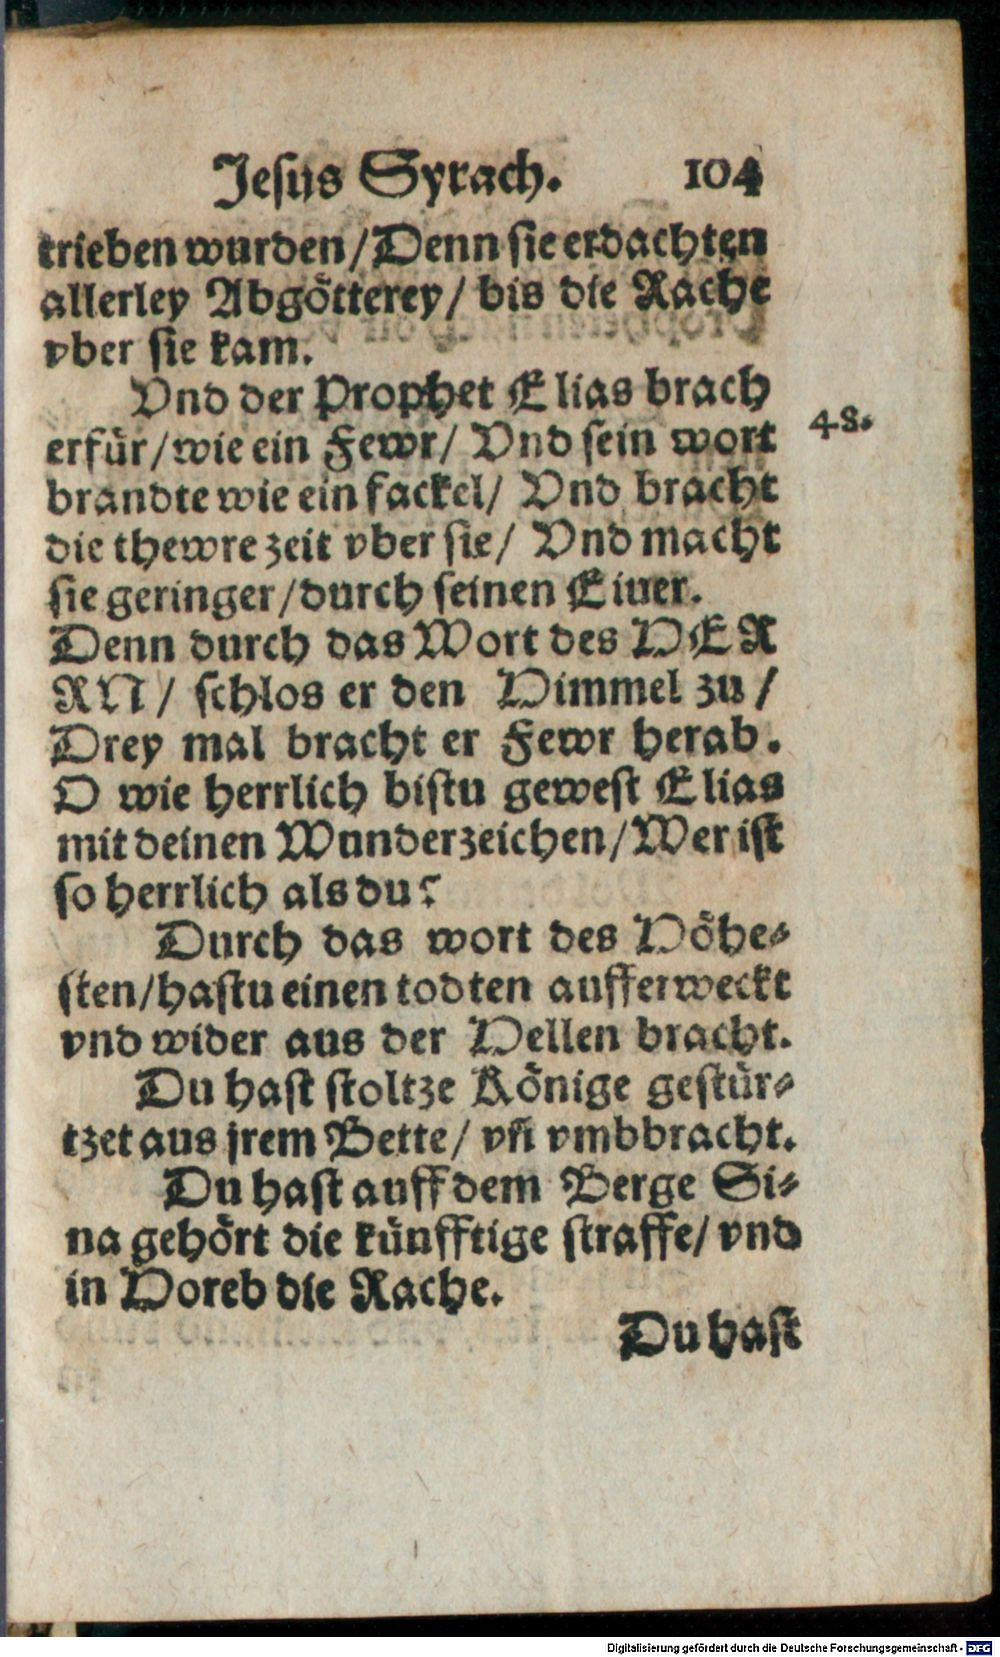 Jesus Syrach. 104
trieben wurden/Denn sie erdachten
allerley Abgötterey/ bis die Rache
vber sie kam.
Vnd der Prophet Elias brach
48.
erfür/wie ein Fewr/ Vnd sein wort
brandte wie ein fackel/ Vnd bracht
die thewre zeit vber sie/ Vnd macht
sie geringer/durch seinen Eiuer.
Denn durch das Wort des HER
RN/ schlos er den Himmel zu/
Drey mal bracht er Fewr herab.
O wie herrlich bistu gewest Elias
mit deinen Wunderzeichen/Wer ist
so herrlich als du?
Durch das wort des Höhe-
sten/hastu einen todten aufferweckt
vnd wider aus der Hellen bracht.
Du hast stoltze Könige gestür-
tzet aus jrem Bette/ vñ vmbbracht.
Du hast auff dem Berge Si-
na gehört die künfftige straffe/ vnd
in Horeb die Rache.
Du hast
Digitalisierung gefördert durch die Deutsche Forschungsgemeinschaft - DFG